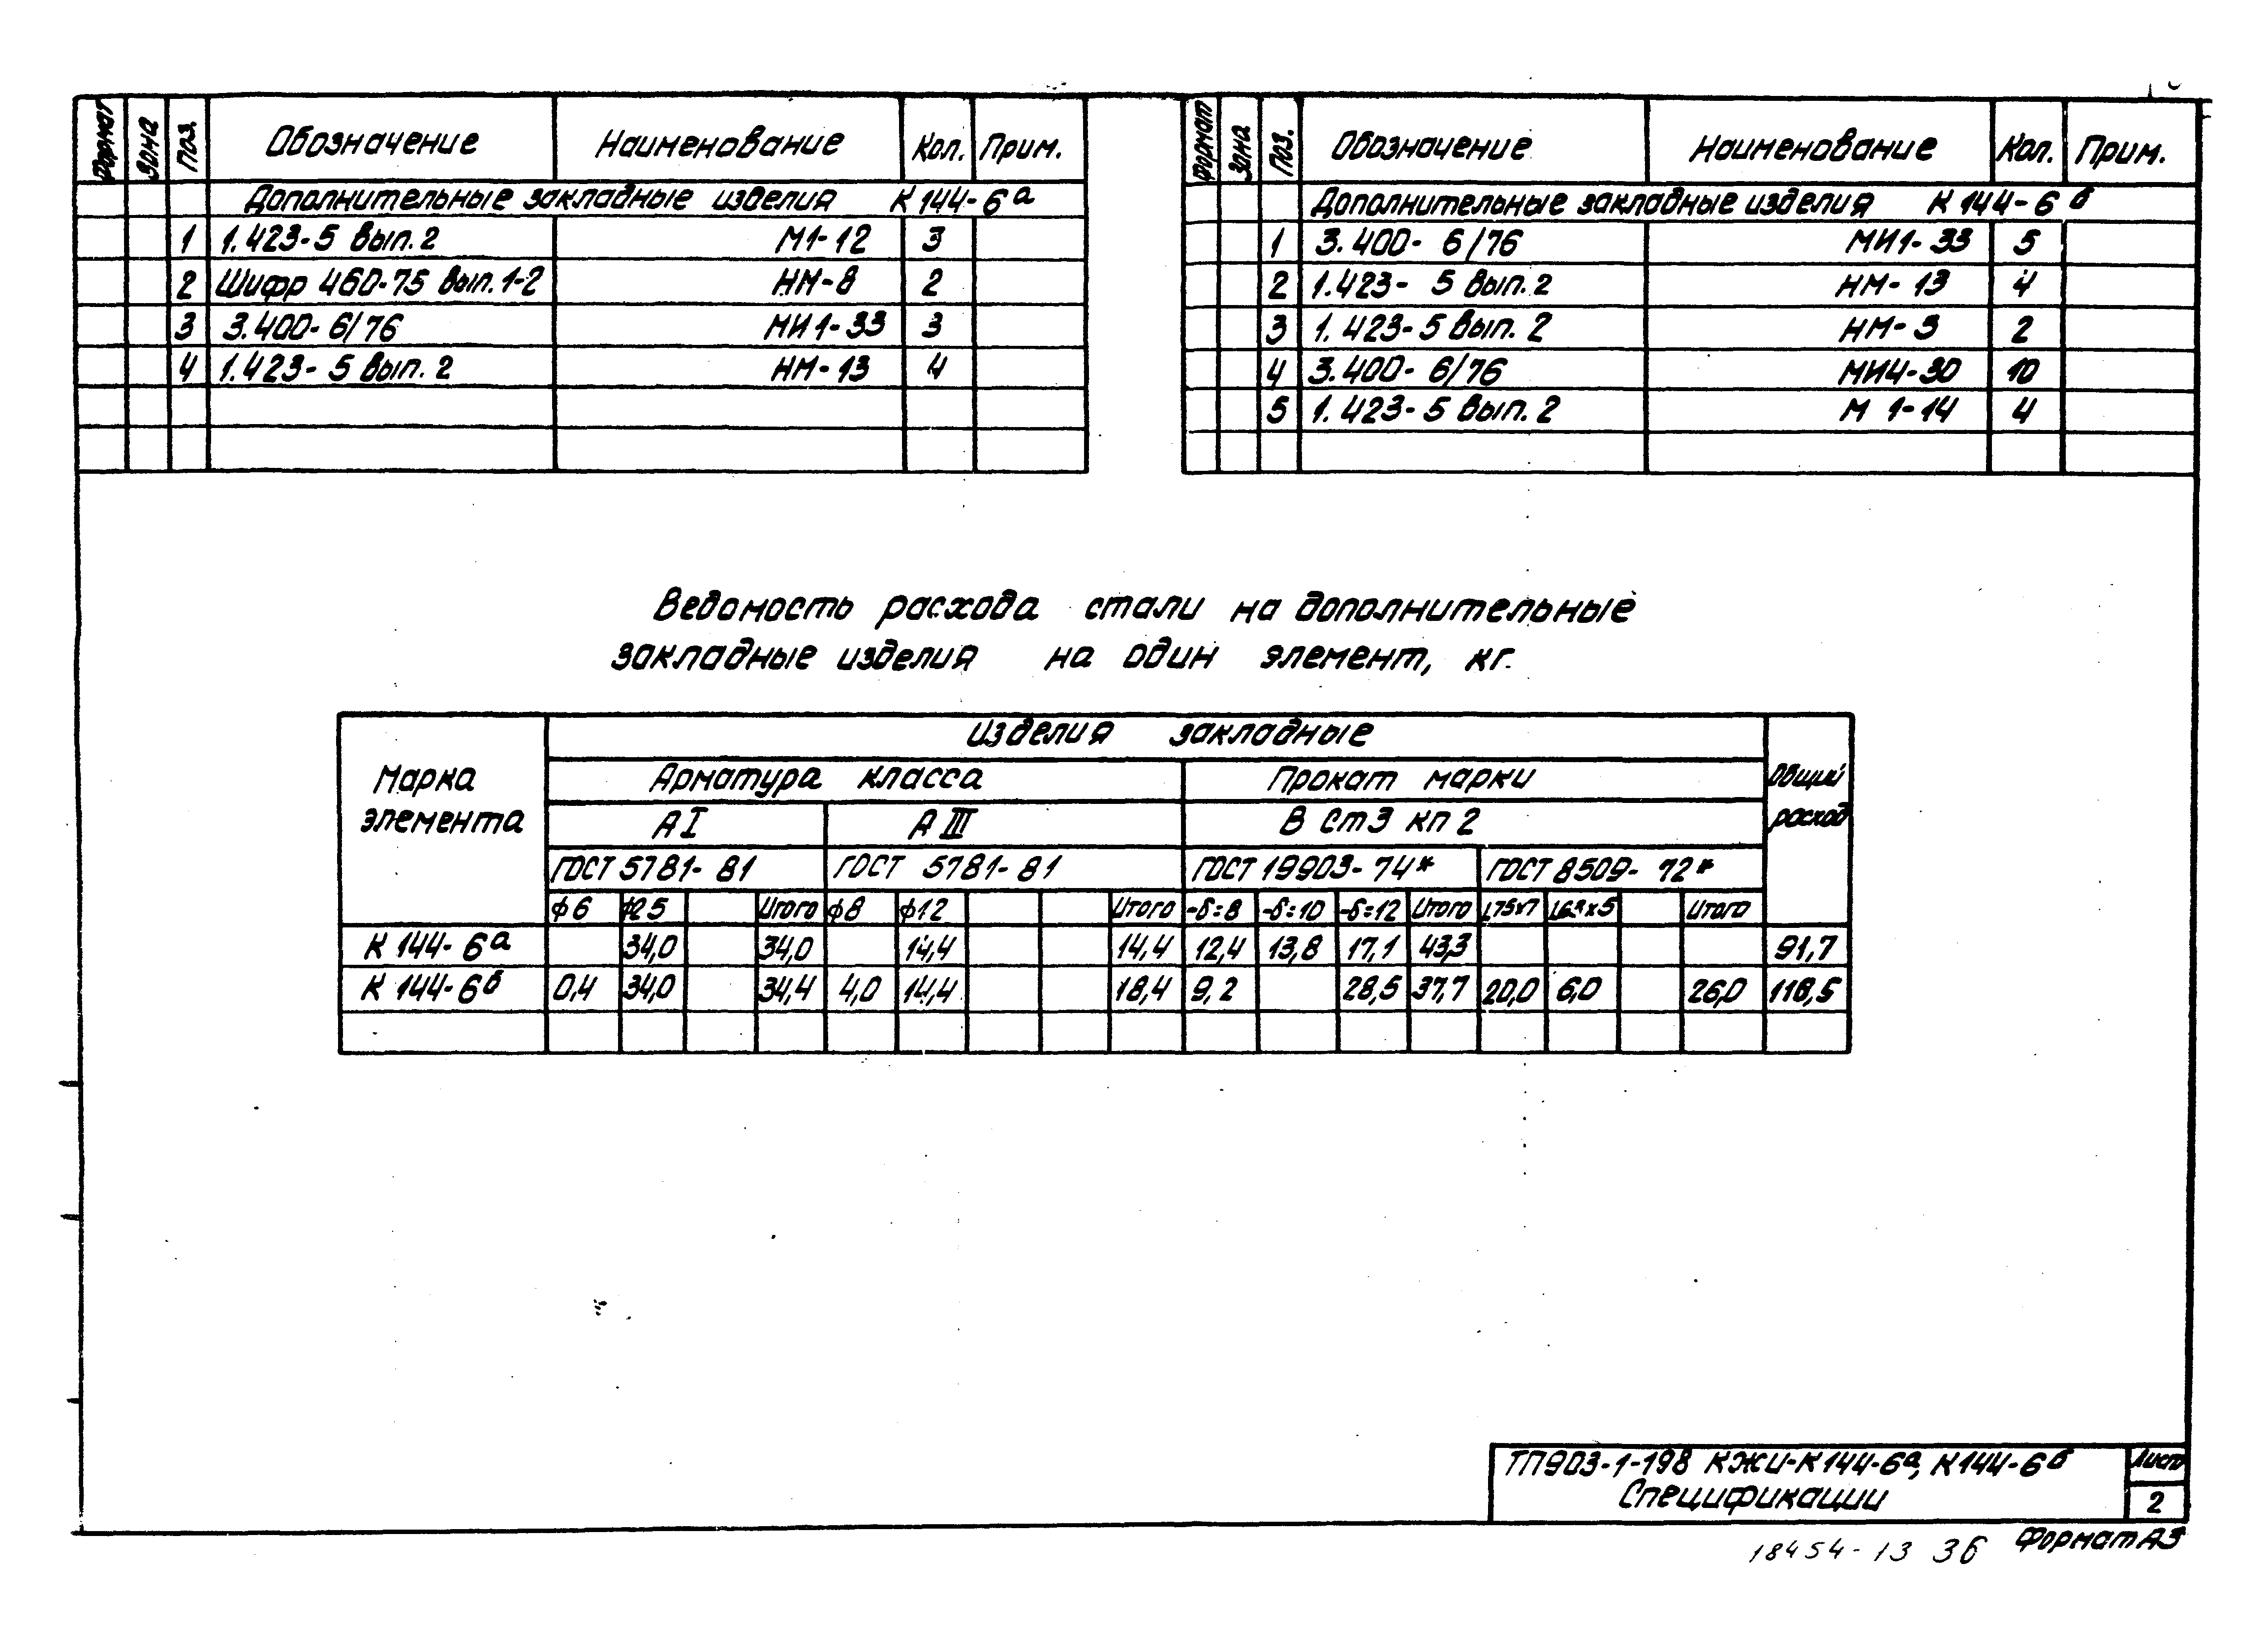 Формат Зона Поз. Обозначение Наименование Кол. Прим.
Дополнительные закладные изделия К 144-6а
1 1.423-5 вып. 2 М1-12 3
2 Шифр 460-75 вып. 1-2 НМ-8 2
3 3.400-6/76 МИ1-33 3
4 1.423-5 вып. 2 НМ-13 4
Формат Зона Поз. Обозначение Наименование Кол. Прим.
Дополнительные закладные изделия К 144-6б
1 3.400-6/76 МИ1-33 5
2 1.423-5 вып. 2 НМ-13 4
3 1.423-5 вып. 2 НМ-3 2
4 3.400-6/76 МИ4-30 10
5 1.423-5 вып. 2 М 1-14 4
Ведомость расхода стали на дополнительные
закладные изделия на один элемент, кг.
Марка элемента Изделия закладные Общий расход
Арматура класса Прокат марки
А I А III В Ст3 кп 2
ГОСТ 5781-81 ГОСТ 5781-81 ГОСТ 19903-74* ГОСТ 8509-72*
ф6 ф25 Итого ф8 ф12 Итого -δ=8 -δ=10 -δ=12 Итого L75х7 Итого
К 144-6а 34,0 34,0 14,4 14,4 12,4 13,8 17,1 43,3 91,7
К 144-6б 0,4 34,0 34,4 4,0 14,4 18,4 9,2 28,5 37,7 20,0 6,0 26,0 116,5
ТП903-1-198 КЖИ-К144-6а, К144-6б Лист
Спецификации 2
18454-13 36 Формат А3